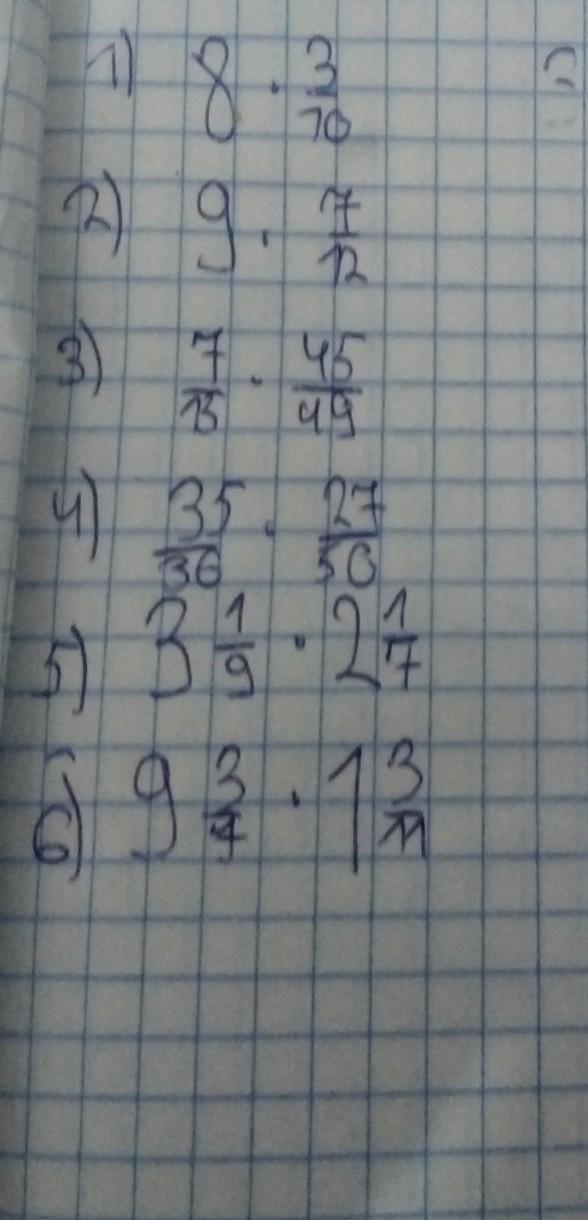 1) 8 · 3/10
2) 9 · 7/12
3) 7/15 · 45/49
4) 35/36 · 27/50
5) 3 1/9 · 2 1/7
6) 9 3/7 · 1 3/11